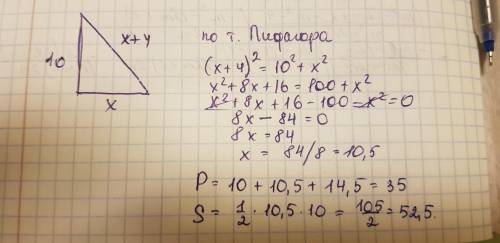 по т. Пифагора
10
x+4
x
(x+4)² = 10² + x²
x² + 8x + 16 = 100 + x²
x² + 8x + 16 - 100 - x² = 0
8x - 84 = 0
8x = 84
x = 84/8 = 10,5
P = 10 + 10,5 + 14,5 = 35
S = 1/2 · 10,5 · 10 = 105/2 = 52,5.